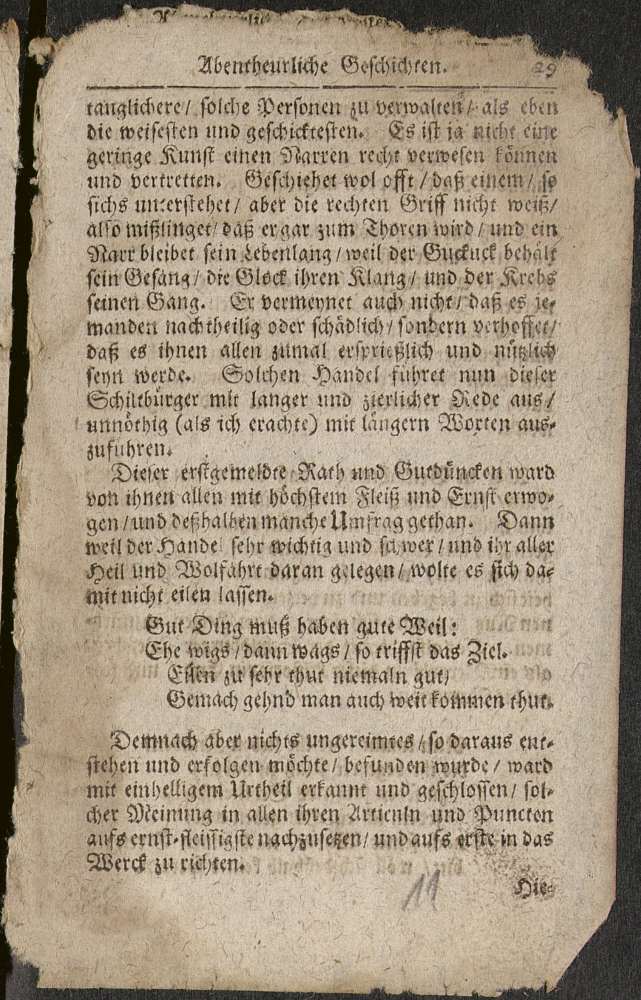 Abentheurliche Geschichten. 29
tauglichere / solche Personen zu verwalten / als eben
die weisesten und geschicktesten. Es ist ja nicht eine
geringe Kunst einen Narren recht verwesen können
und vertretten. Geschiehet wol offt / daß einem / so
sichs unterstehet / aber die rechten Griff nicht weiß /
also mißlinget / daß er gar zum Thoren wird / und ein
Narr bleibet sein Lebenlang / weil der Guckuck behält
sein Gesang / die Glock ihren Klang / und der Krebs
seinen Gang. Er vermeynet auch nicht / daß es je-
manden nachtheilig oder schädlich / sondern verhoffet /
daß es ihnen allen zumal ersprießlich und nützlich
seyn werde. Solchen Handel führet nun dieser
Schiltbürger mit langer und zierlicher Rede aus /
unnöthig (als ich erachte) mit längern Worten aus-
zuführen.
Dieser erstgemeldte Rath und Gutdüncken ward
von ihnen allen mit höchstem Fleiß und Ernst erwo-
gen / und deßhalben manche Umfrag gethan. Dann
weil der Handel sehr wichtig und schwer / und ihr aller
Heil und Wolfahrt daran gelegen / wolte es sich da-
mit nicht eilen lassen.
Gut Ding muß haben gute Weil:
Ehe wigs / dann wags / so triffst das Ziel.
Eilen zu sehr thut niemaln gut /
Gemach gehnd man auch weit kommen thut.
Demnach aber nichts ungereimtes / so daraus ent-
stehen und erfolgen möchte / befunden wurde / ward
mit einhelligem Urtheil erkannt und geschlossen / sol-
cher Meinung in allen ihren Articuln und Puncten
aufs ernst-fleissigste nachzusetzen / und aufs erste in das
Werck zu richten.
11
Hie-